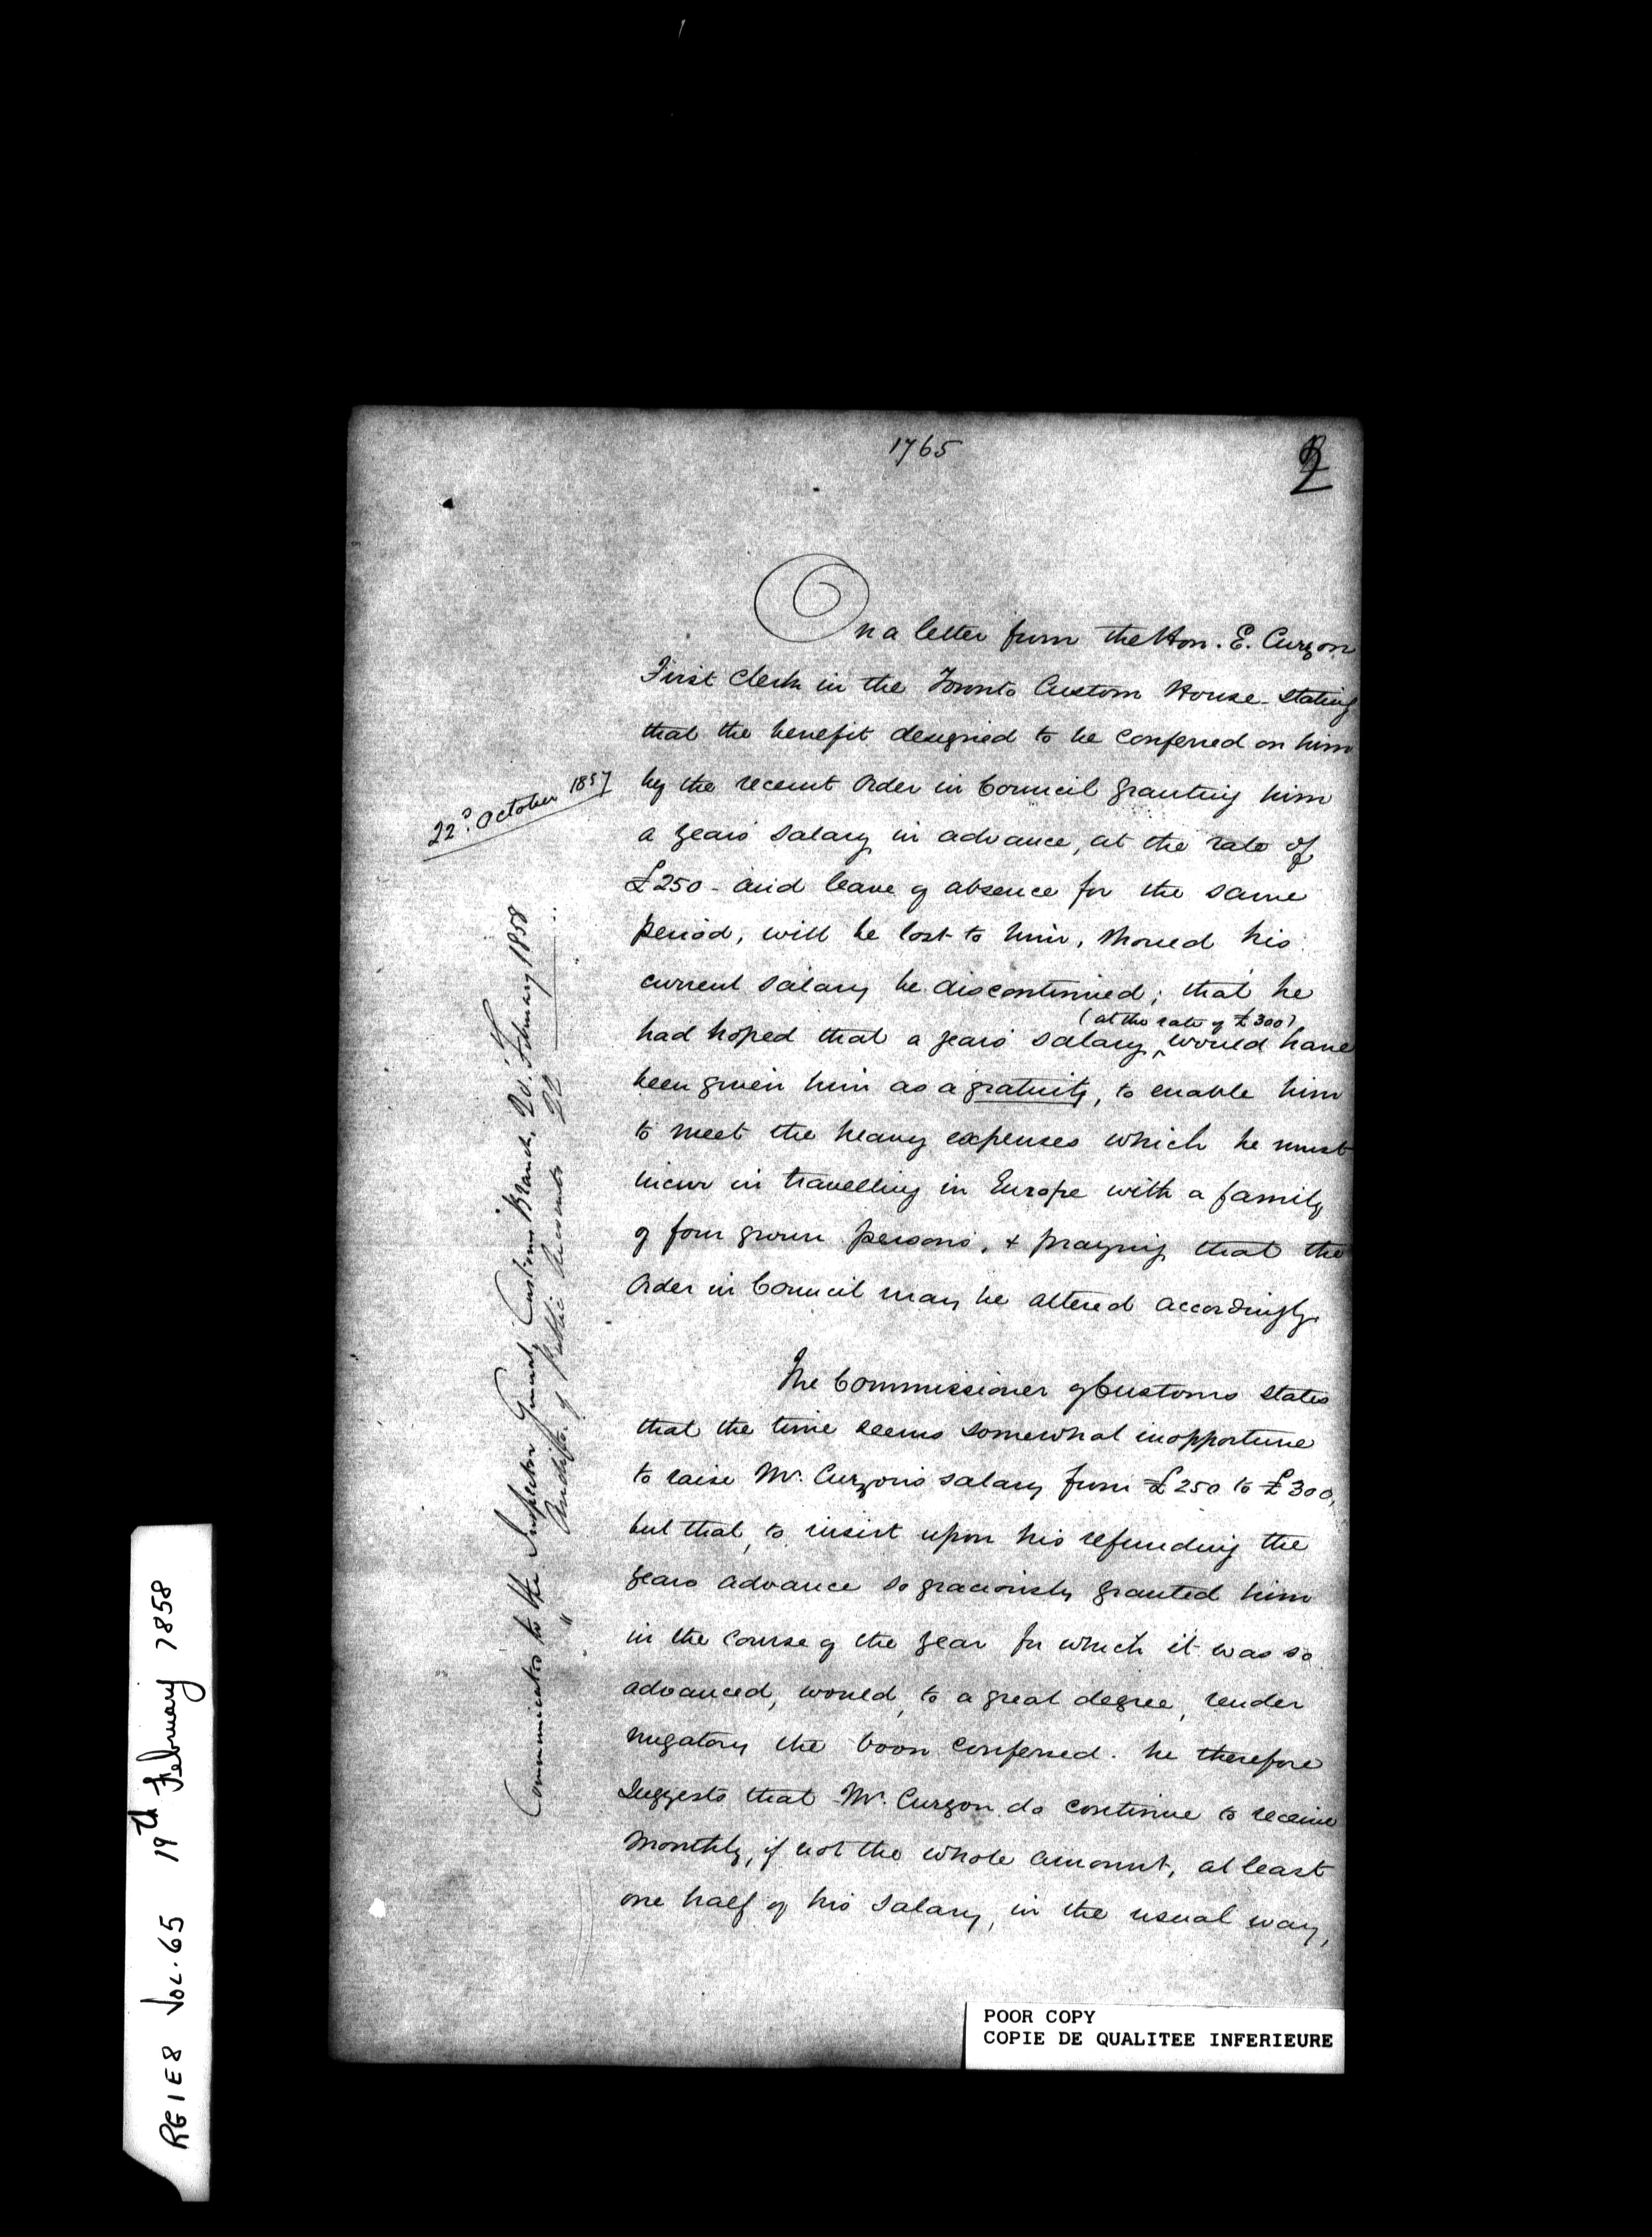 1765
2
On a letter from the Hon. E. Curzon
First Clerk in the Toronto Custom House - stating
that the benefit designed to be conferred on him
by the recent Order in Council granting him
22d. October 1857
a years salary in advance, at the rate of
£250 - and leave of absence for the same
period, will be lost to him, should his
current salary be discontinued; that he
(at the rate of £300)
had hoped that a years salary ^ would have
been given him as a gratuity, to enable him
to meet the heavy expenses which he must
incur in travelling in Europe with a family
of four grown persons, & praying that the
Order in Council may be altered accordingly.
The Commissioner of Customs states
that the time seems somewhat inopportune
to raise Mr. Curzon's salary from £250 to £300,
but that, to insist upon his refunding the
years advance so graciously granted him
in the course of the year for which it was so
advanced, would, to a great degree, render
nugatory the boon conferred. he therefore
suggests that Mr. Curzon do continue to receive
monthly, if not the whole amount, at least
one half of his salary, in the usual way,
Communicated to the Inspector General, Customs Branch, 20th. February 1858
" Auditor of Public Accounts 22
RG1E8 VOL. 65 19th February 1858
POOR COPY
COPIE DE QUALITEE INFERIEURE